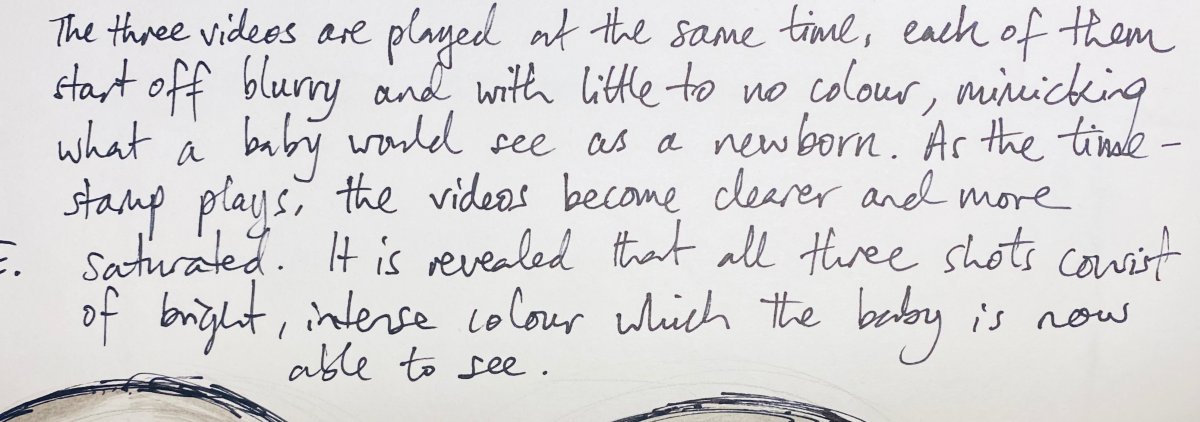 The three videos are played at the same time, each of them
start off blurry and with little to no colour, mimicking
what a baby would see as a newborn. As the time-
stamp plays, the videos become clearer and more
E. saturated. It is revealed that all three shots consist
of bright, intense colour which the baby is now
able to see.